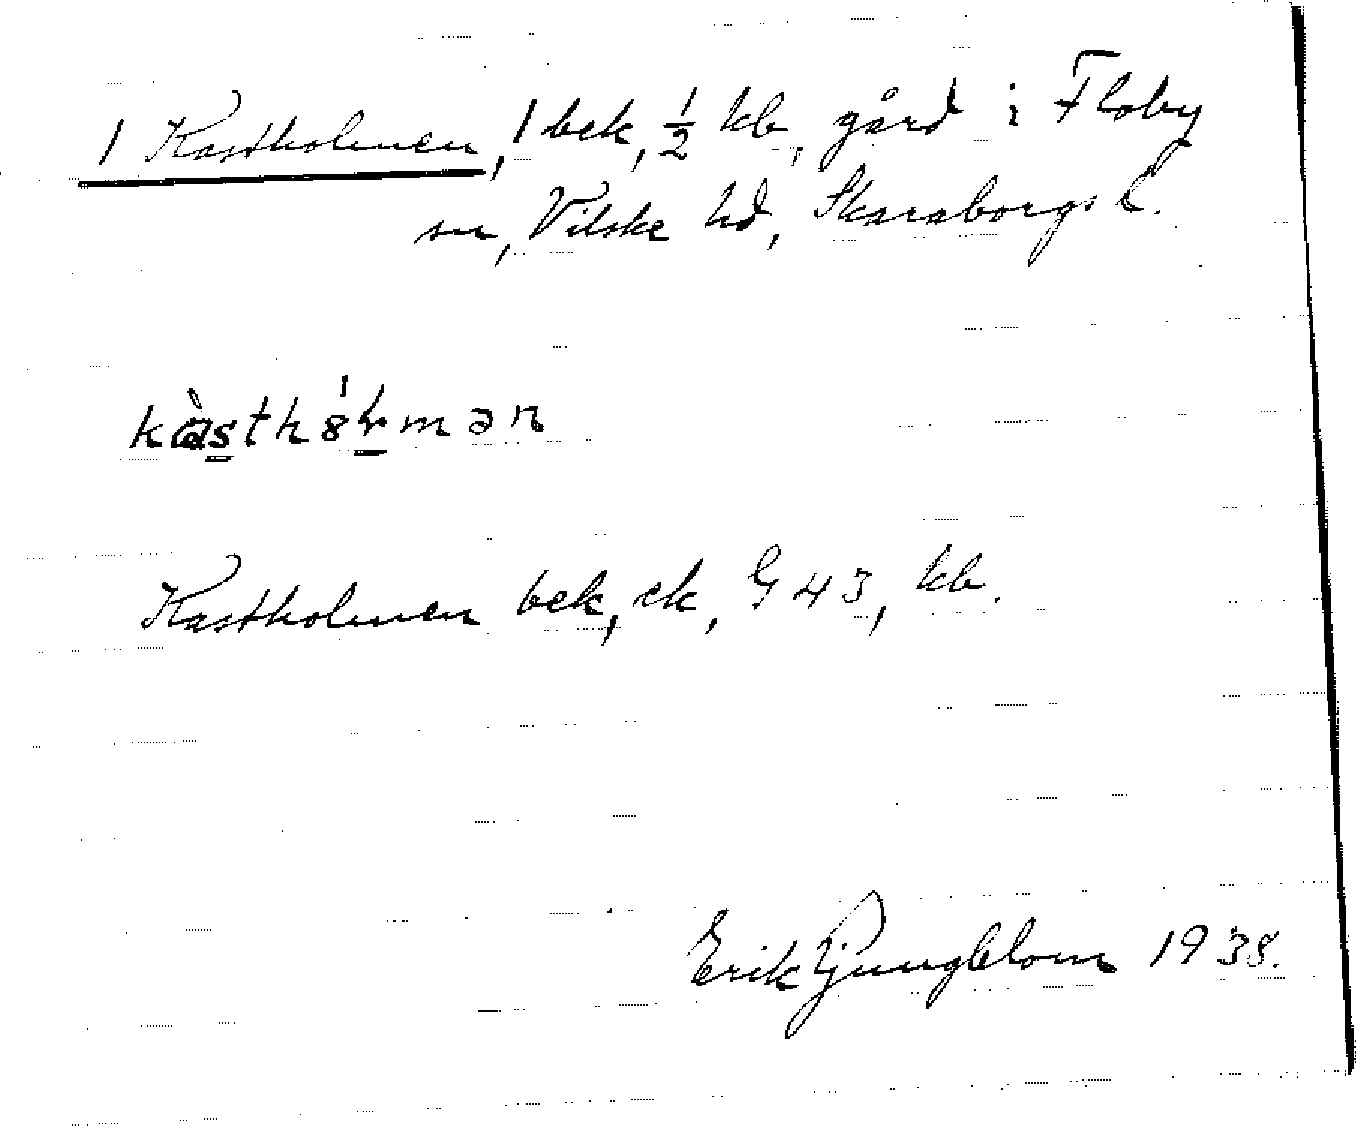 1 Kastholmen, 1 bek, ½ kb, gård i Floby
sn, Vilske hd, Skaraborgs l.
Kastholmen bek, ek, G 43, kb.
Erik Ljungblom 1938.